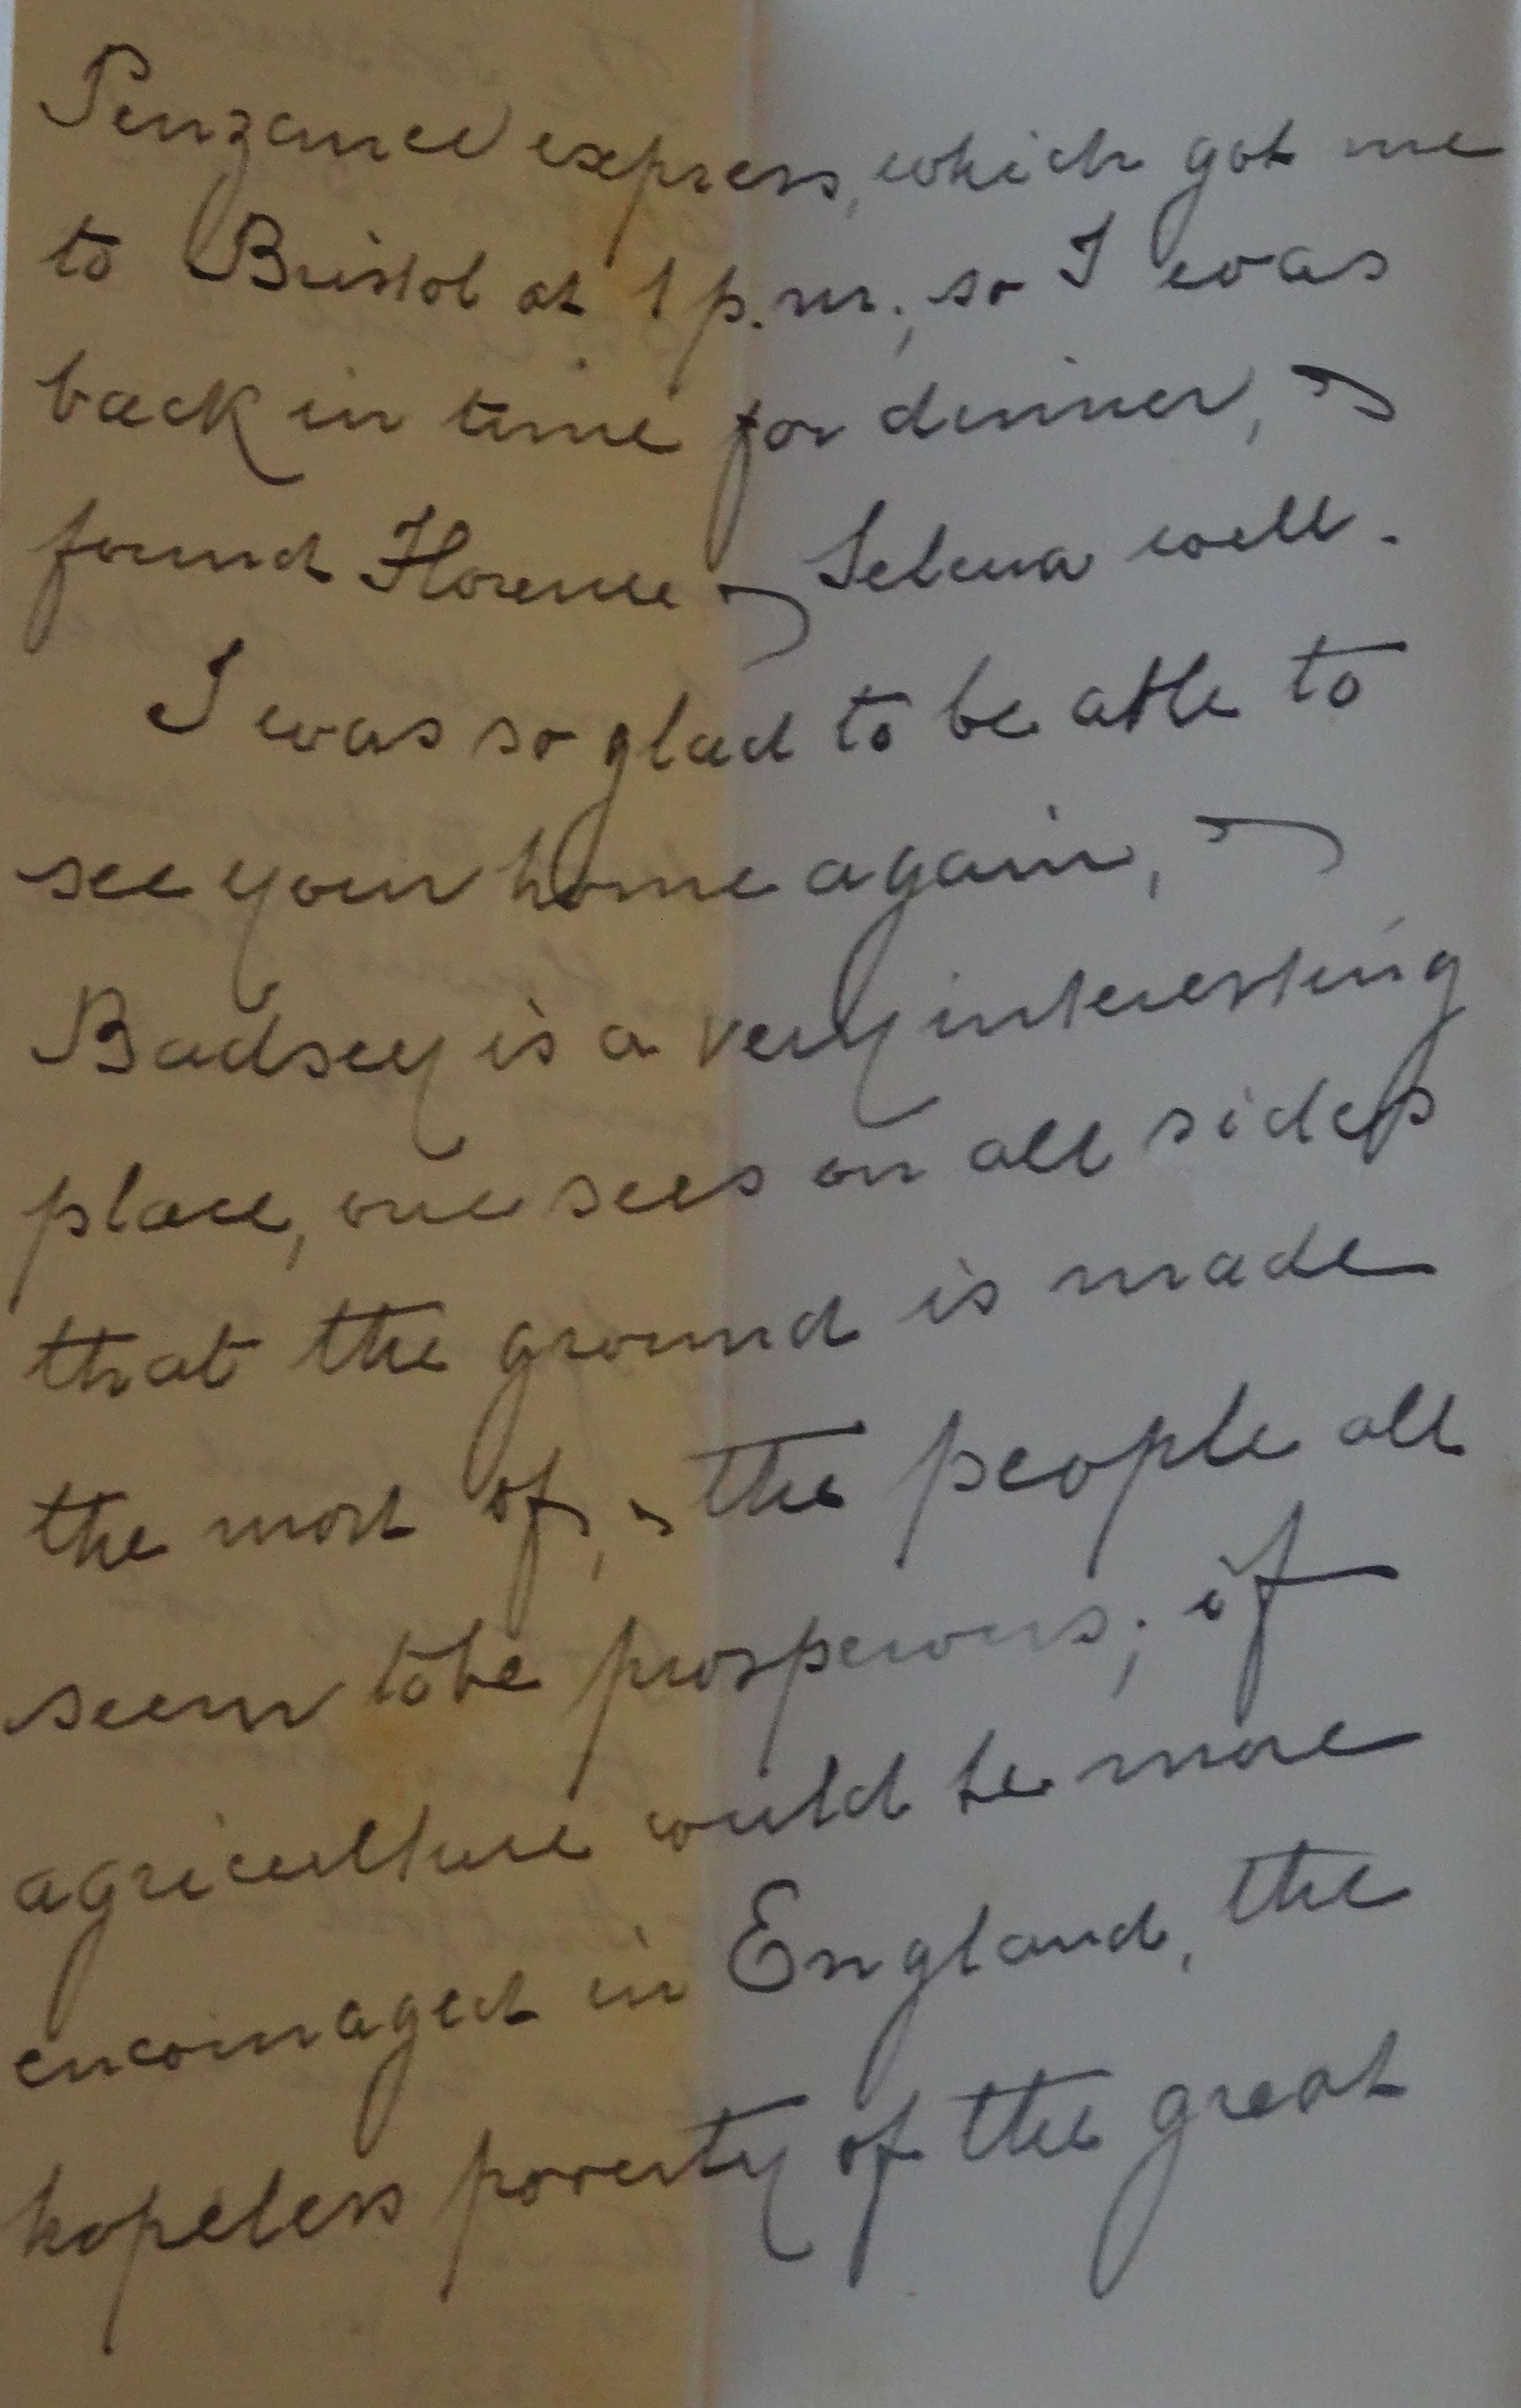 Penzance express, which got me
to Bristol at 1 p.m.; so I was
back in time for dinner, &
found Florence & Selina well.
I was so glad to be able to
see your home again, &
Badsey is a very interesting
place, one sees on all sides
that the ground is made
the most of, & the people all
seem to be prosperous; if
agriculture could be more
encouraged in England, the
hopeless poverty of the great